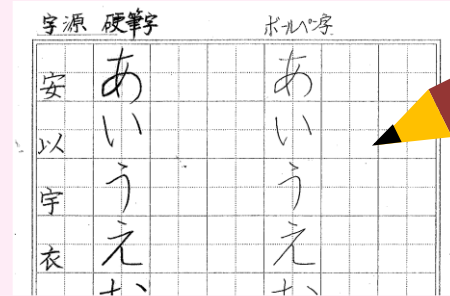 字源 硬筆字 ボールペン字
安 あ あ
以 い い
宇 う う
衣 え え